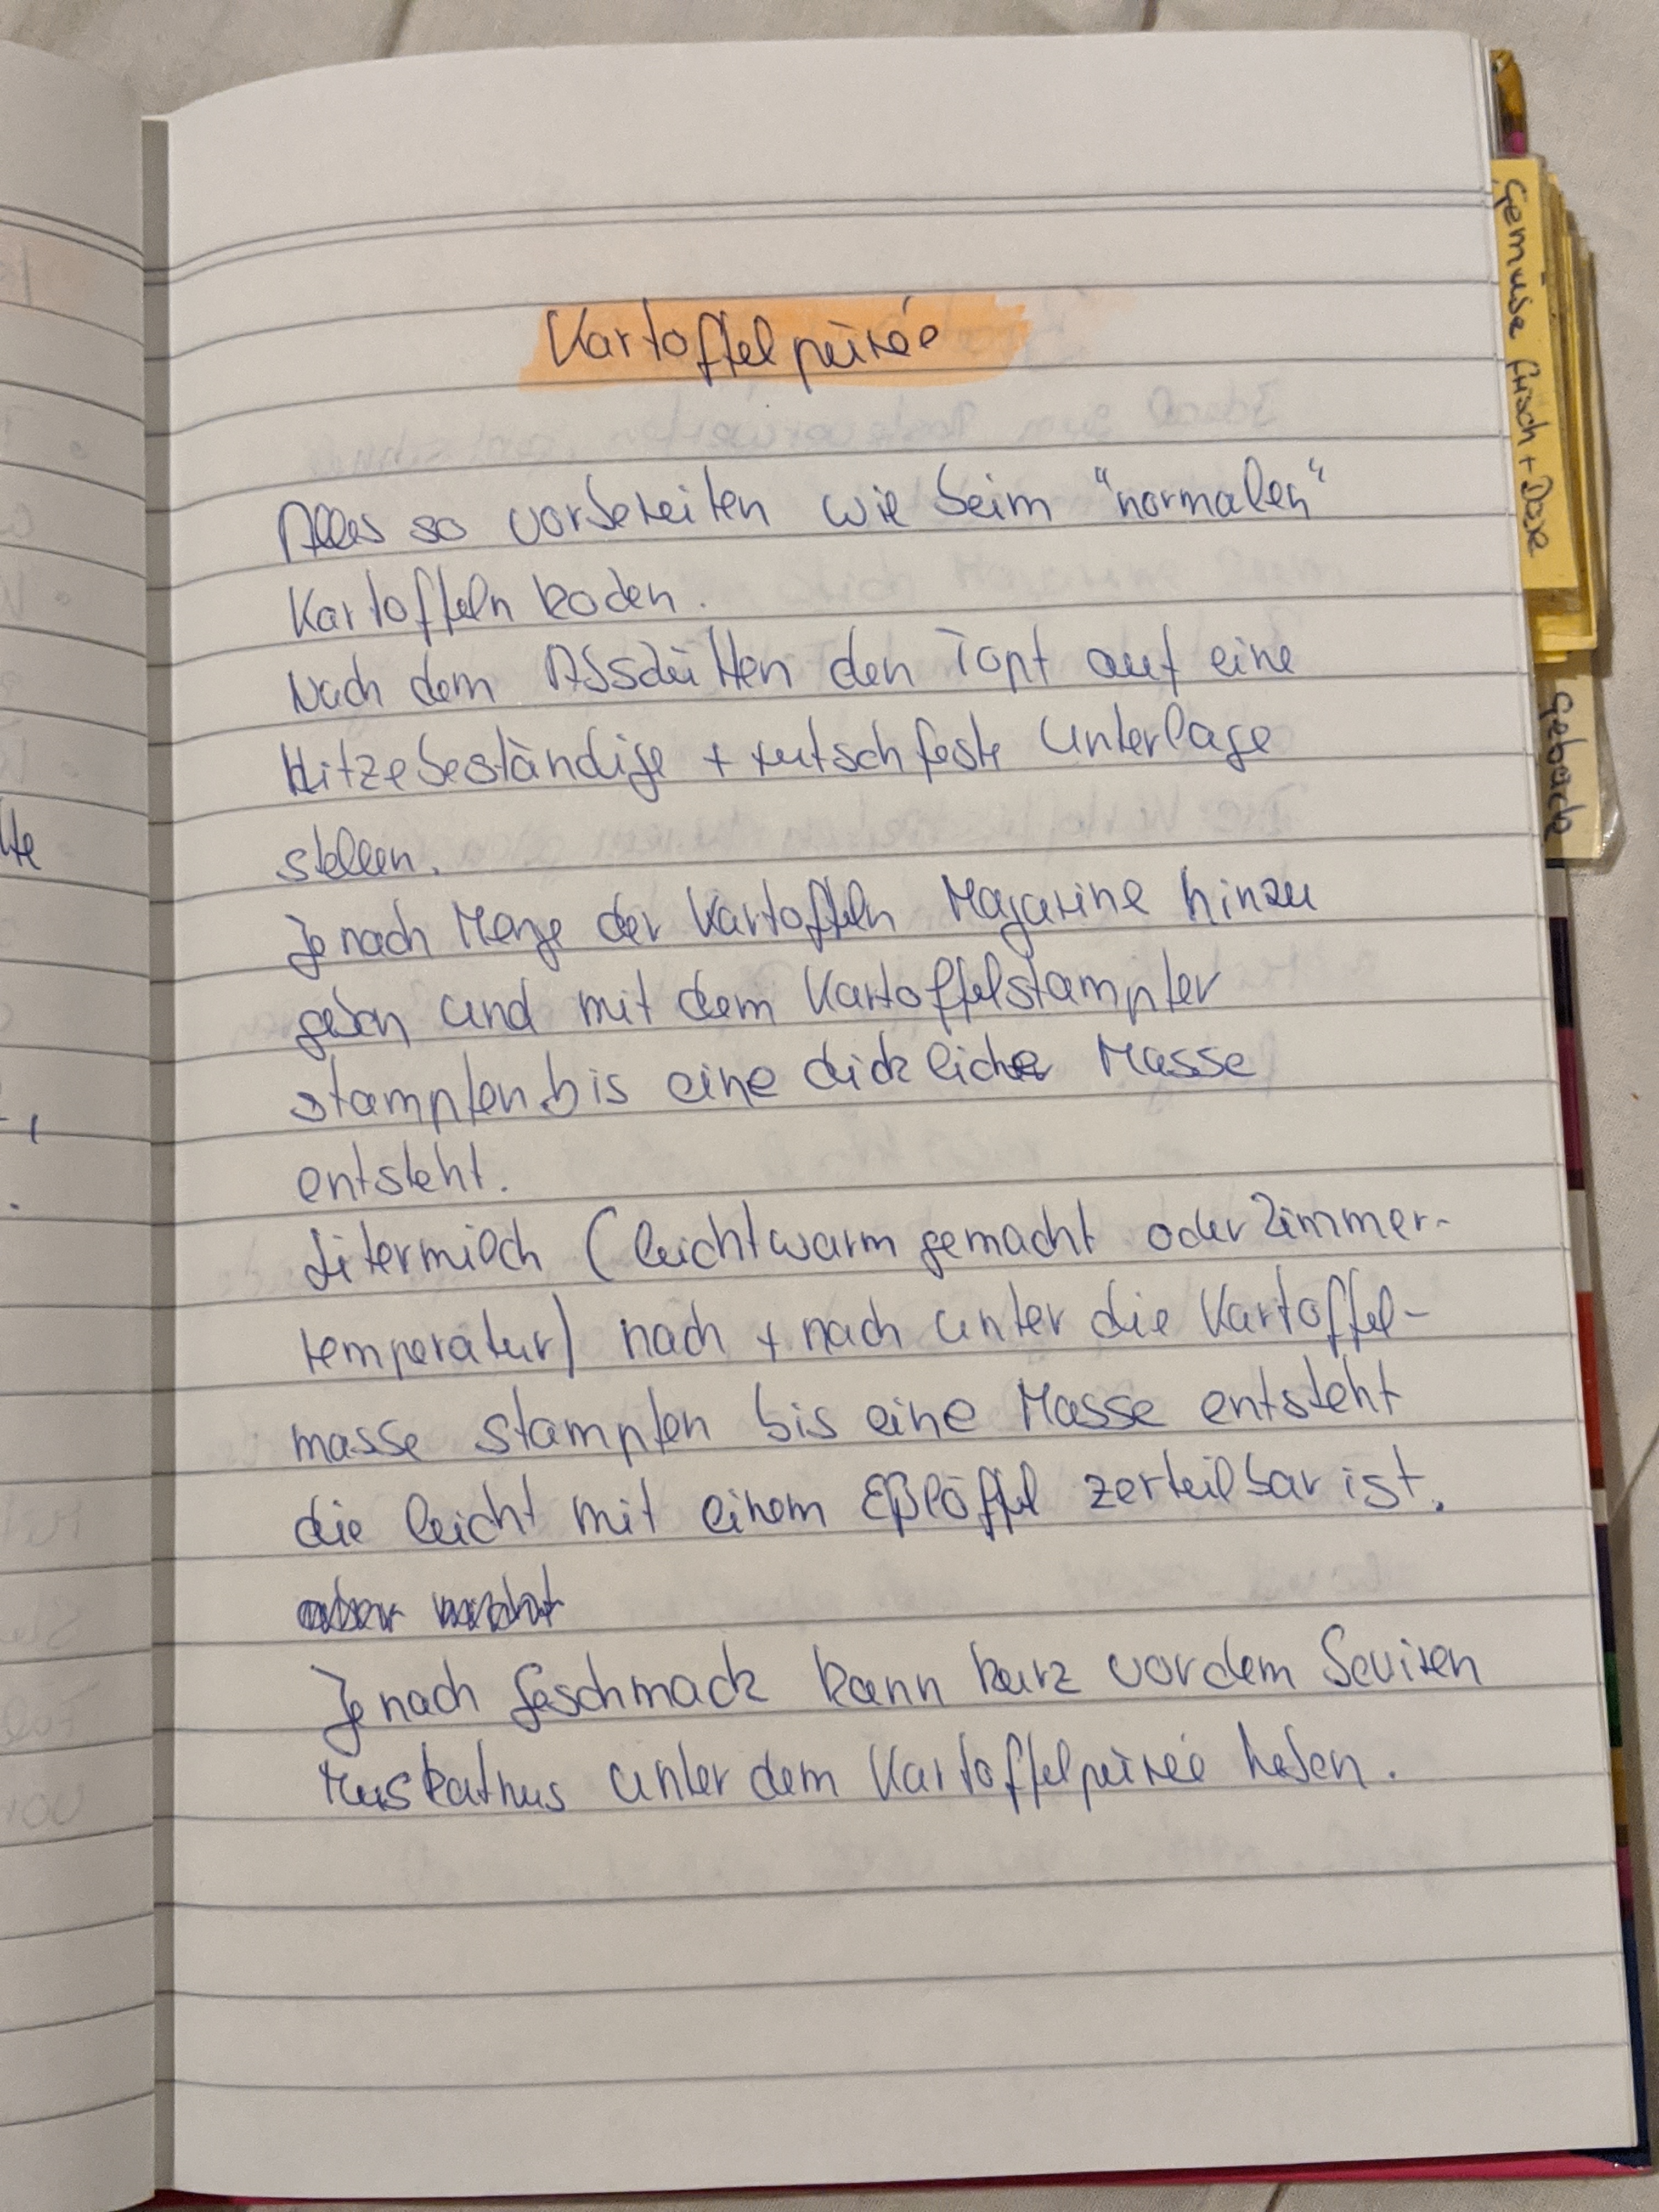 Kartoffelpüreé
Alles so vorbereiten wie beim "normalen"
Kartoffeln kochen.
Nach dem Abschütten den Topf auf eine
Hitzebeständige + rutschfeste Unterlage
stellen.
Je nach Menge der Kartoffeln Magarine hinzu
geben und mit dem Kartoffelstampfer
stampfen bis eine dickliche Masse
entsteht.
Litermilch (leicht warm gemacht oder Zimmer-
temperatur) nach + nach unter die Kartoffel-
masse stampfen bis eine Masse entsteht
die leicht mit einem Eßlöffel zerteilbar ist.
Je nach Geschmack kann kurz vor dem Seviren
Muskatnus unter dem Kartoffelpüreé heben.
Gemüse frisch + Dose
Gebäck